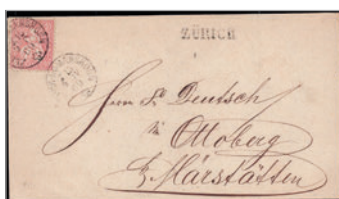 ZÜRICH
Herrn Fr Deutsch
in
Ottoberg
b/ Märstätten